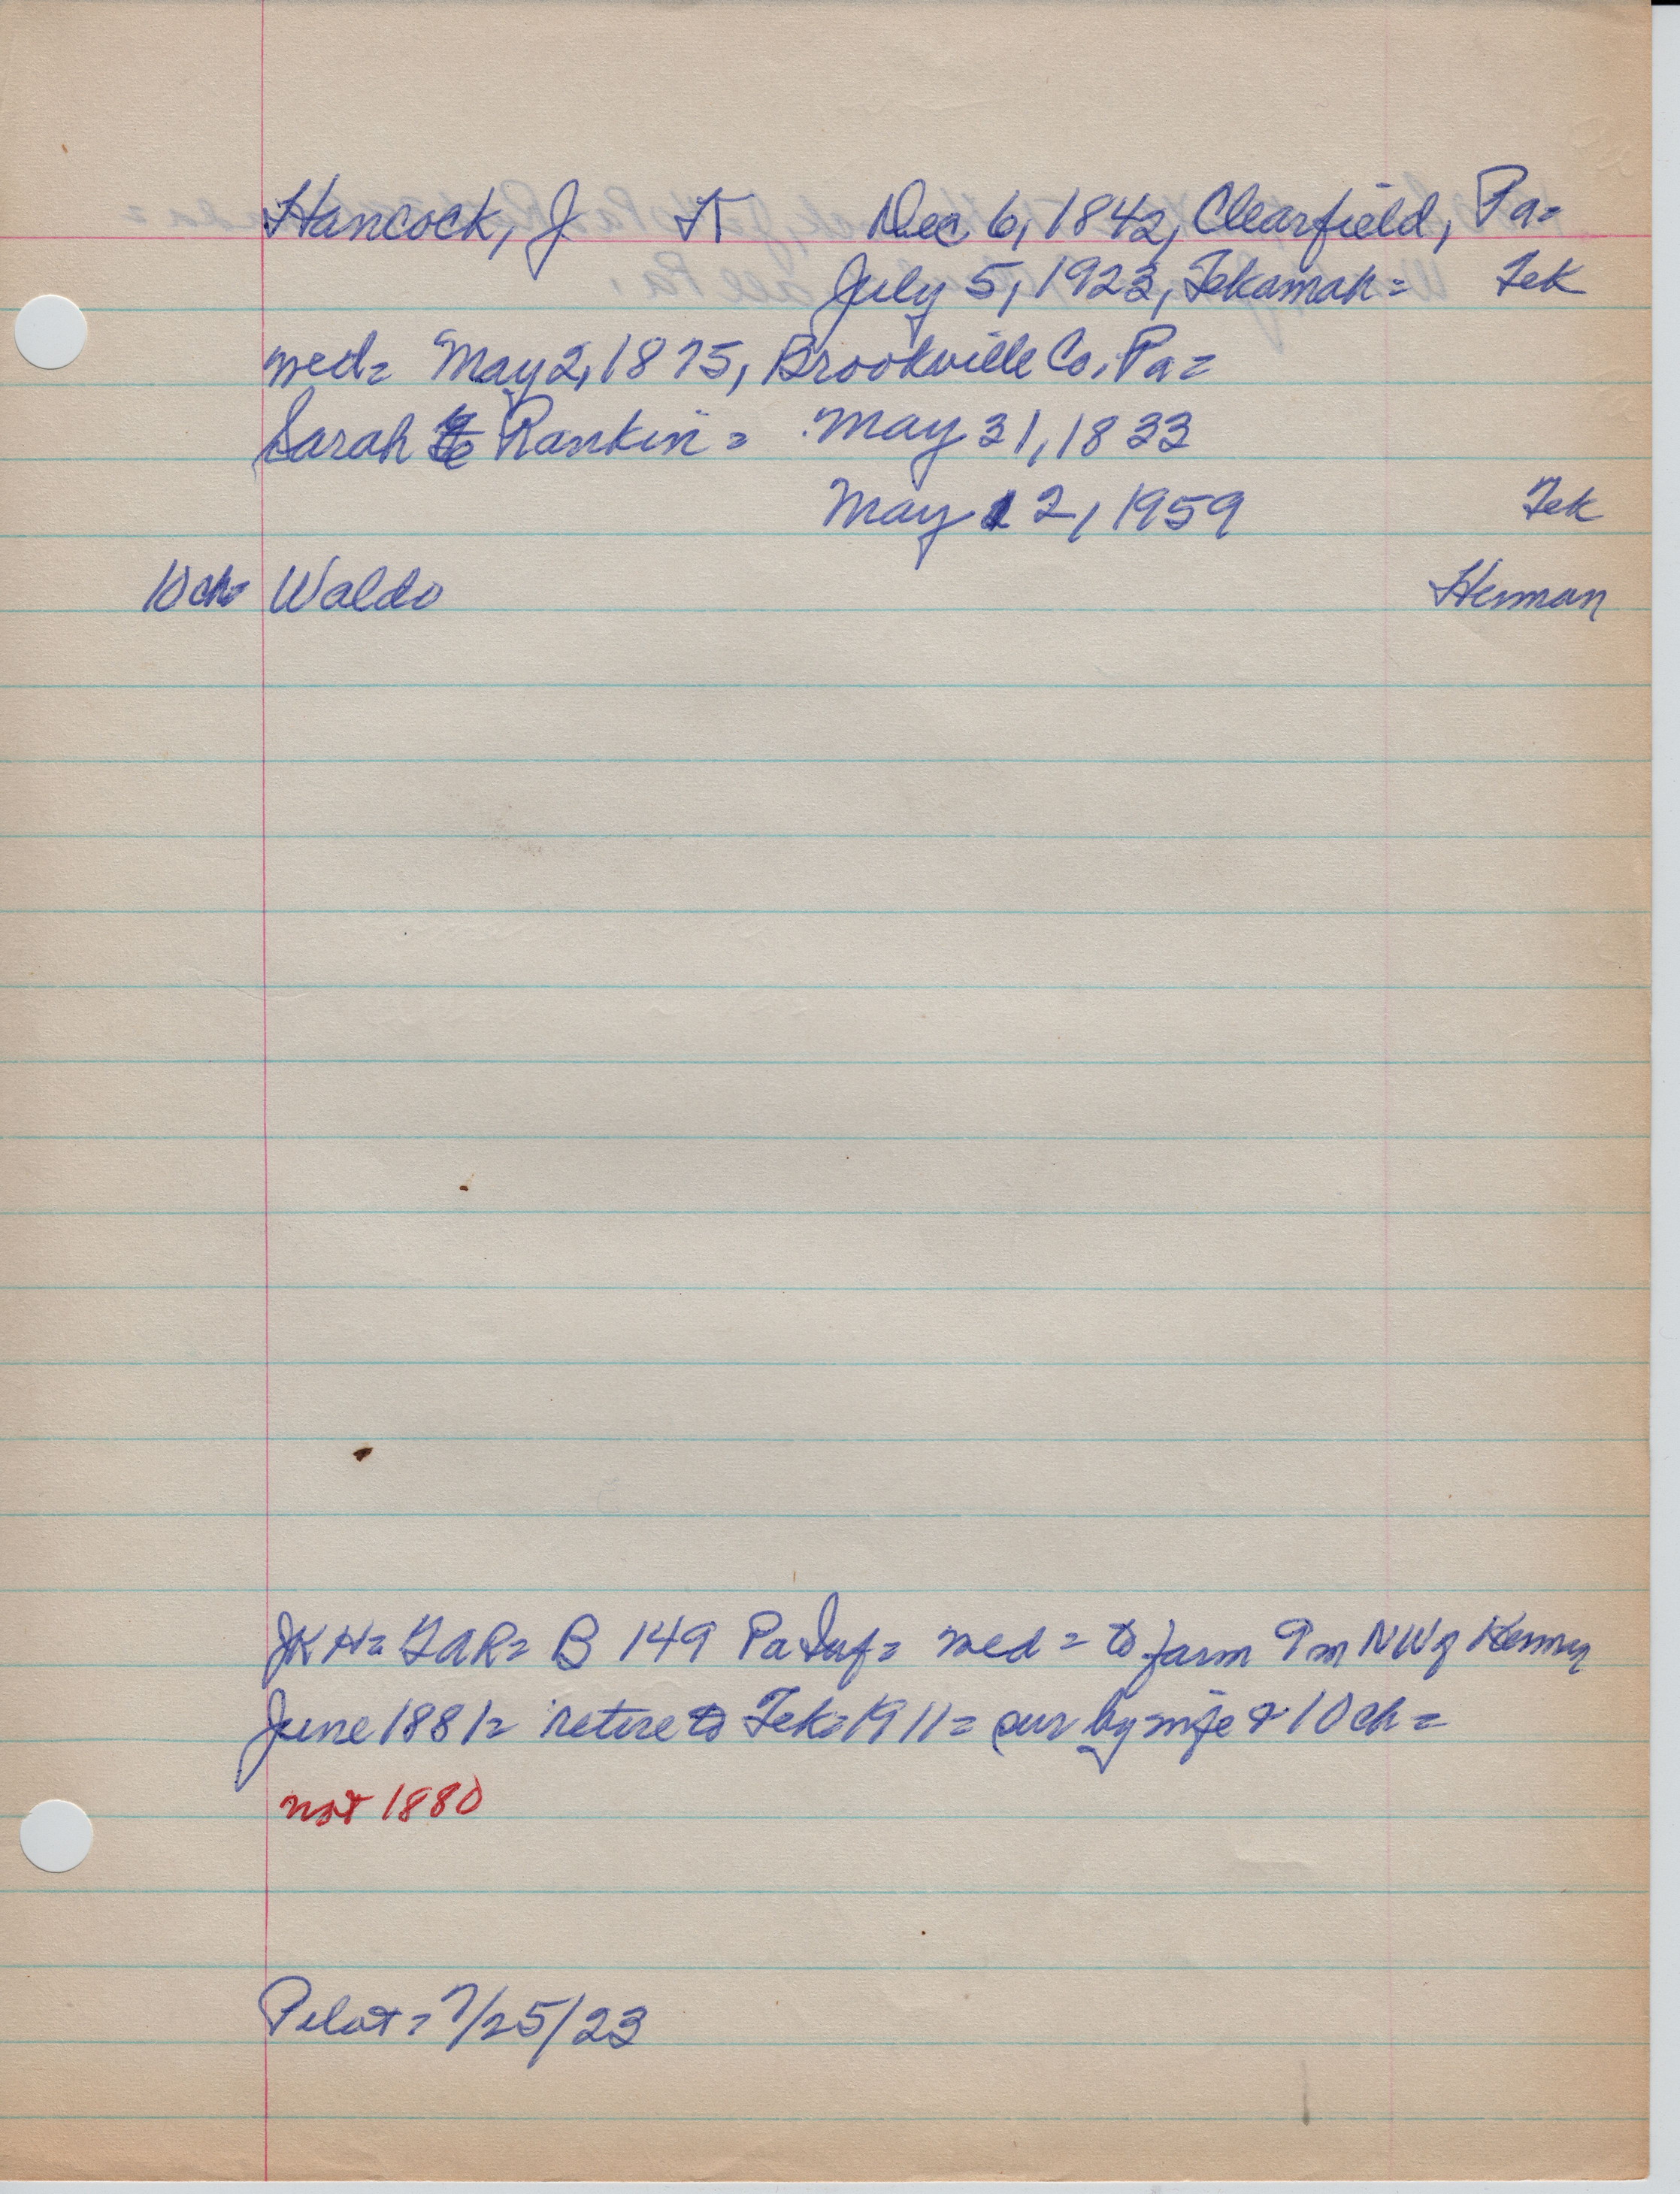 Hancock, J K Dec 6, 1842, Clearfield, Pa=
July 5, 1923, Tekamah= Tek
wed= May 2, 1875, Brookville Co, Pa=
Sarah E Rankin= May 31, 1833
May 12, 1959 Tek
10 ch= Waldo Herman
JKH= GAR= B 149 Pa Inf= wed= to farm 9 m NW of Herman
June 1881= retire to Tek= 1911= sur by wife & 10 ch=
not 1880
Pilot= 7/25/23